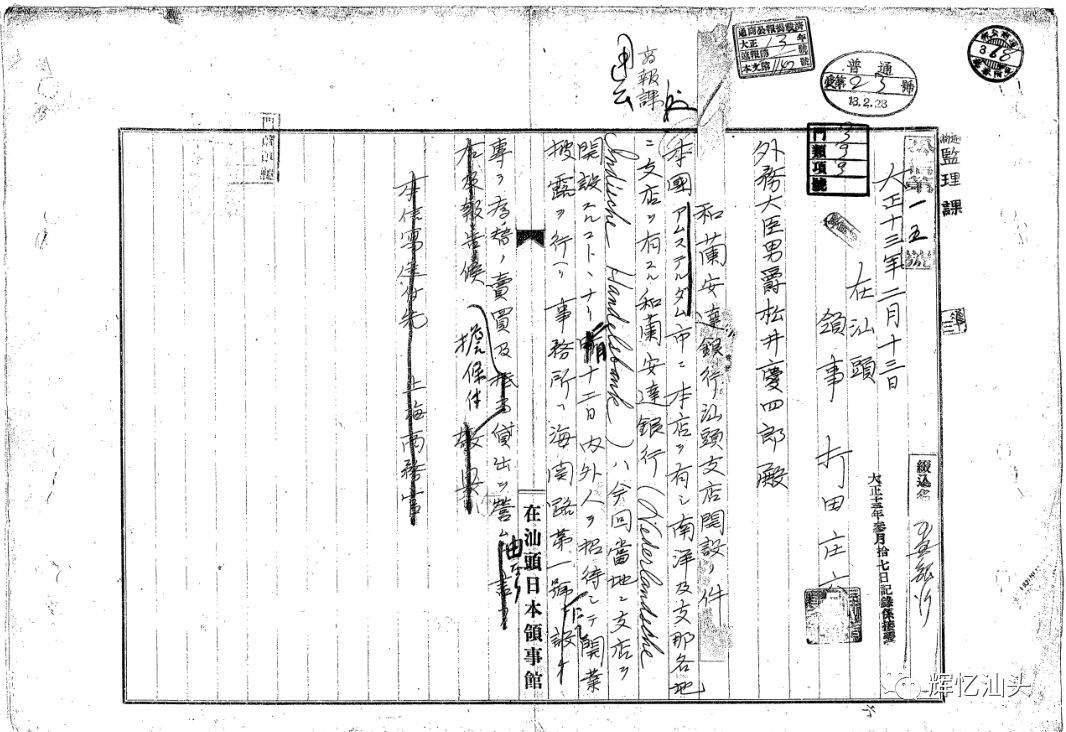 監理課
普通
受第23號
13.2.23
通商公報掲載済
大正13年
本文第1162號
368
商報課
門類項號
3
3
9
一五
大正十三年二月十三日
在汕頭
領事 打田庄六
外務大臣男爵松井慶四郎殿
和蘭安達銀行汕頭支店開設ノ件
本國アムステルダム市ニ本店ヲ有シ南洋及支那各地
ニ支店ヲ有スル和蘭安達銀行(Nederlandsche
Indische Handelsbank)ハ今回當地ニ支店ヲ
開設スルコトヽナリ 十二日内外人ヲ招待シテ開業
披露ヲ行ヘリ事務所ハ海関路第一號ニ設ケ
専ラ為替ノ賣買及 貸出ヲ營
擔保付
右及報告候 敬具
本信寫送付先 上海商務官
在汕頭日本領事館
大正十三年參月拾七日記録係接受
辉忆汕头